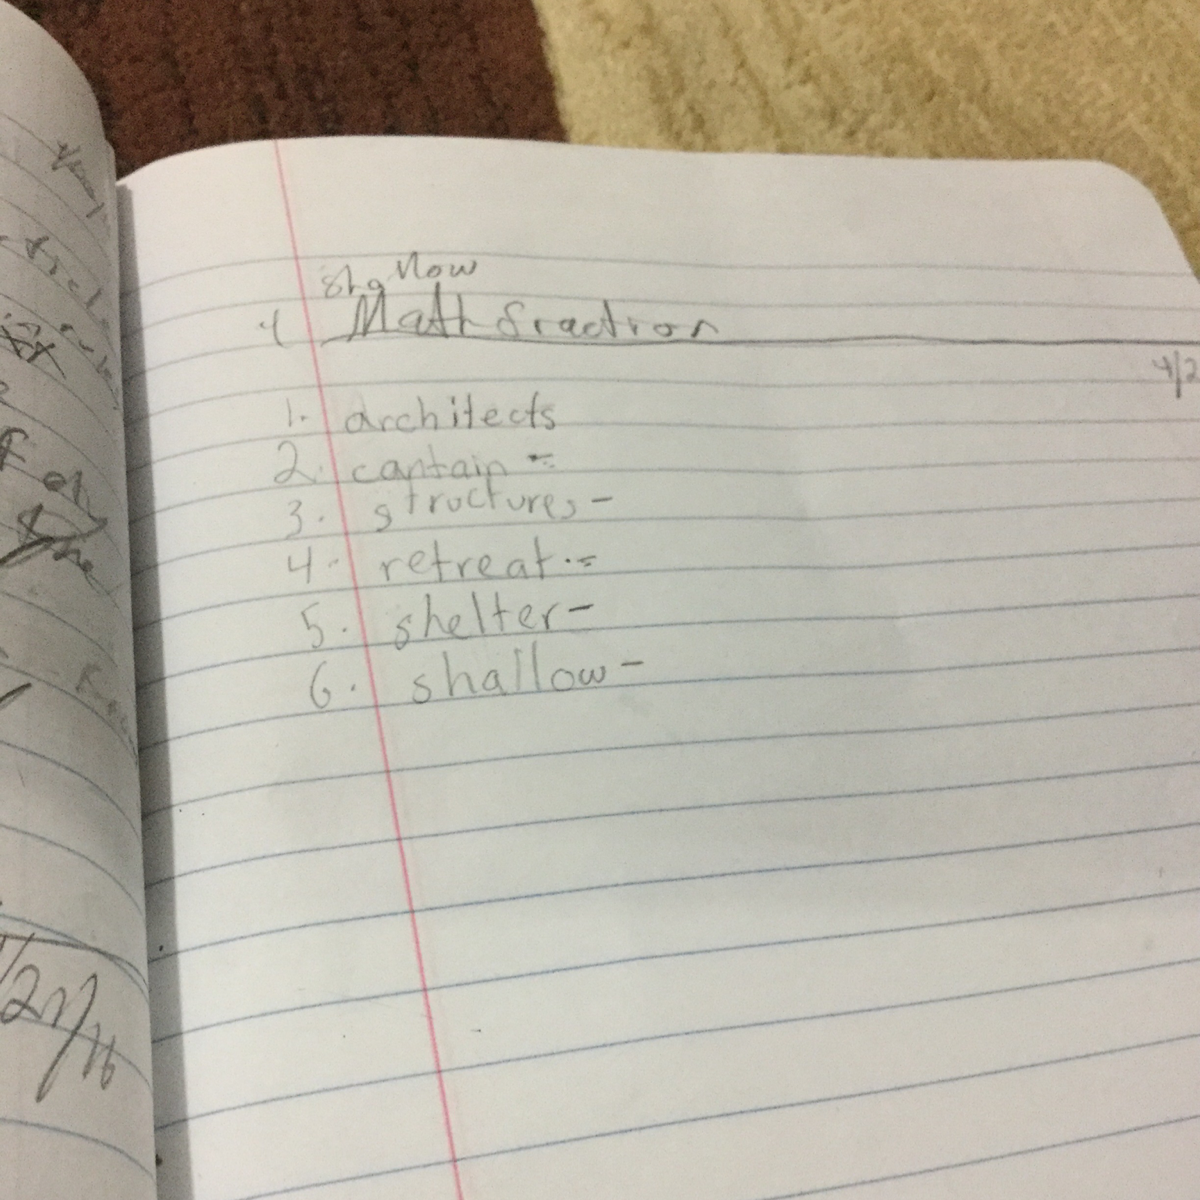 shallow
4 Math fraction
4/2
1. architects
2. captain -
3. structures -
4. retreat -
5. shelter -
6. shallow -
the
1/27/16